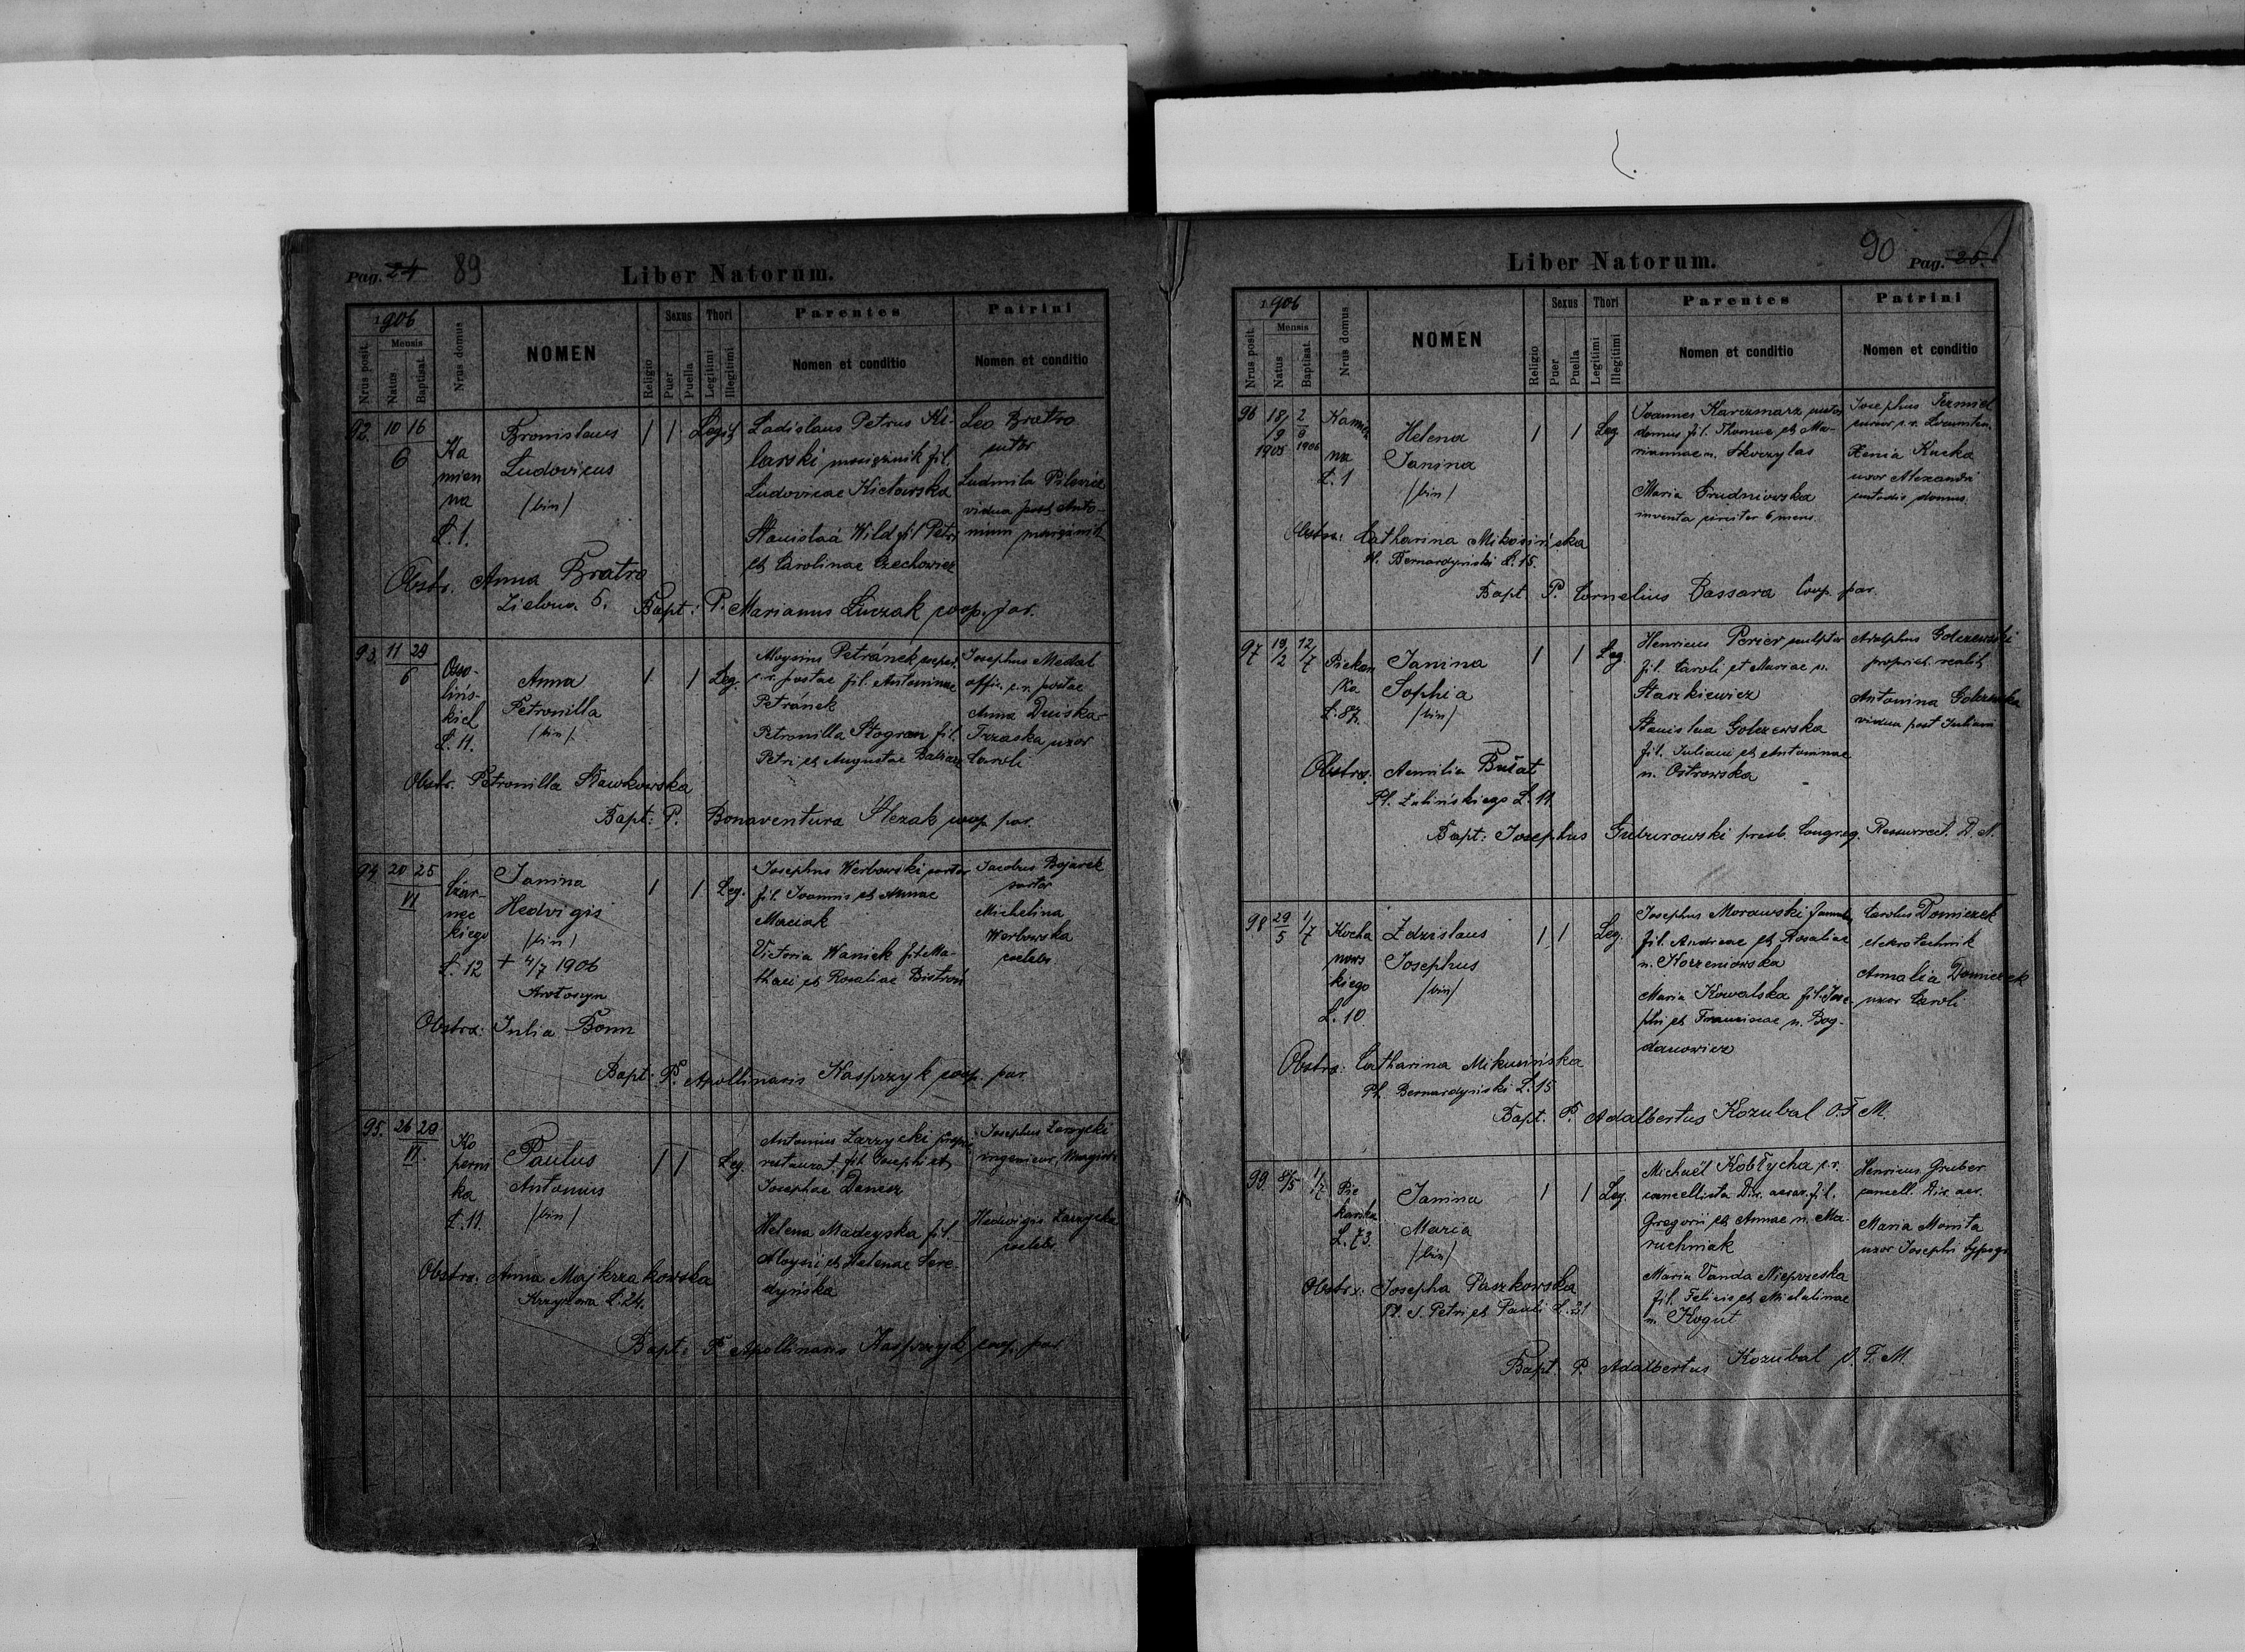 Pag. 24 89
Liber Natorum.
1906
Nrus posit.
Mensis
Natus
Baptisat.
Nrus domus
NOMEN
Religio
Sexus
Puer
Puella
Thori
Legitimi
Illegitimi
Parentes
Nomen et conditio
Patrini
Nomen et conditio
92. 10 16
6
Ka
mien
na
Ł. 1.
Bronislaus
Ludovicus
/bin/
1 1 Legit
Ladislaus Petrus Ki-
larski fil.
Ludovicae
Stanislaa Wild fil Petri
et Carolinae Czechowicz
Leo Bratro
sutor
Ludmila
vidua post Anto-
nium
Obstr. Anna Bratro
Zielona 5.
Bapt: P. Marianus Luczak coop. par.
93. 11 24
6
Osso-
lińs-
kich
Ł. 11.
Anna
Petronilla
/bin/
1 1 Leg.
Aloysius Petránek
c.r. postae fil. Antoninae
Petránek
Petronilla Stogran fil.
Petri et Augustae
Josephus Medal
offic. c.r. postae
Anna
Trzaska uxor
Caroli
Obstr. Petronilla Sławkowska
Bapt: P. Bonaventura Stezak coop. par.
94. 20 25
VI
Czar-
nec
kiego
Ł. 12
Janina
Hedvigis
/bin/
+ 4/7 1906
Krotoszyn
1 1 Leg.
Josephus Werbowski sartor
fil. Joannis et Annae
Maciak
Victoria Waniek fil Ma-
thaei et Rosaliae Bistroń
Jacobus Bojarek
sartor
Michelina
Werbowska
coelebs
Obstr: Julia Bonn
Bapt: P. Apollinaris Kasprzyk coop. par.
95. 26 29
VI.
Ko
perni
ka
Ł. 11.
Paulus
Antonius
/bin/
1 1 Leg.
Antonius Zarzycki
restaurat. fil Josephi et
Josephae
Helena Madeyska fil.
Aloysii et Helenae Sere-
dyńska
Josephus Zarzycki
ingenieur
Hedvigis Zarzycka
coelebs
Obstr: Anna Majkrzakowska
Krzyżowa Ł. 24.
Bapt: P. Apollinaris Kasprzyk coop. par.
Liber Natorum.
90 Pag. 25.
1906
Nrus posit.
Mensis
Natus
Baptisat.
Nrus domus
NOMEN
Religio
Sexus
Puer
Puella
Thori
Legitimi
Illegitimi
Parentes
Nomen et conditio
Patrini
Nomen et conditio
96 18/ 2
/9 6
1905 1906
Kamien
na
Ł. 1
Helena
Janina
/bin/
1 1 Leg
Joannes Karczmarz custos
domus fil. Thomae et Ma-
riannae n. Skorzylas
Maria Grudniowska
inventa circiter 6 mens.
Josephus
cursor c.r. Locumten.
Xenia Kucka
uxor Alexandri
custodis domus.
Obstr: Catharina Mikosińska
Pl. Bernardyński Ł. 15.
Bapt P. Cornelius Bassara Coop. par.
97 19/2 12/7
Piekar
ska
Ł. 87.
Janina
Sophia
/bin/
1 1 Leg.
Henricus Perier sculptor
fil. Caroli et Mariae n.
Staszkiewicz
Stanislaa Golczewska
fil. Juliani et Antoninae
n. Ostrowska
Adolphus Golczewski
propriet. realit.
Antonina Golczewska
vidua post Julian
Obstr: Aemilia Bułat
Pl. Ł. 11.
Bapt: Josephus Guburowski presb. Congreg. Resurrect. D. N.
98 29/5 1/7
Kocha
nows
kiego
Ł. 10.
Zdzislaus
Josephus
/bin/
1 1 Leg.
Josephus Morawski famulus
fil. Andreae et Rosaliae
n. Korzeniowska
Maria Kowalska fil. Jose-
phi et Franciscae n. Bog-
danowicz
Carolus Domiczek
elektrotechnik
Amalia Domiczek
uxor Caroli
Obstr: Catharina Mikusińska
Pl. Bernardyński Ł. 15
Bapt. P. Adalbertus Kozubal O.F.M.
99. 8/5 1/7
Pie
karska
Ł. 73.
Janina
Maria
/bin/
1 1 Leg.
Michaël Kobłycha c.r.
cancellista Dir. aerar. fil.
Gregorii et Annae n. Ma-
ruchniak
Maria Vanda Nieprzeska
fil. Felicis et Michalinae
n. Kogut
Henricus Gruber
cancell. Dir. aer.
Maria Monita
uxor Josephi typogr.
Obstr: Josepha Paszkowska
Pl. S. Petri et Pauli Ł. 31
Bapt. P. Adalbertus Kozubal O.F.M.